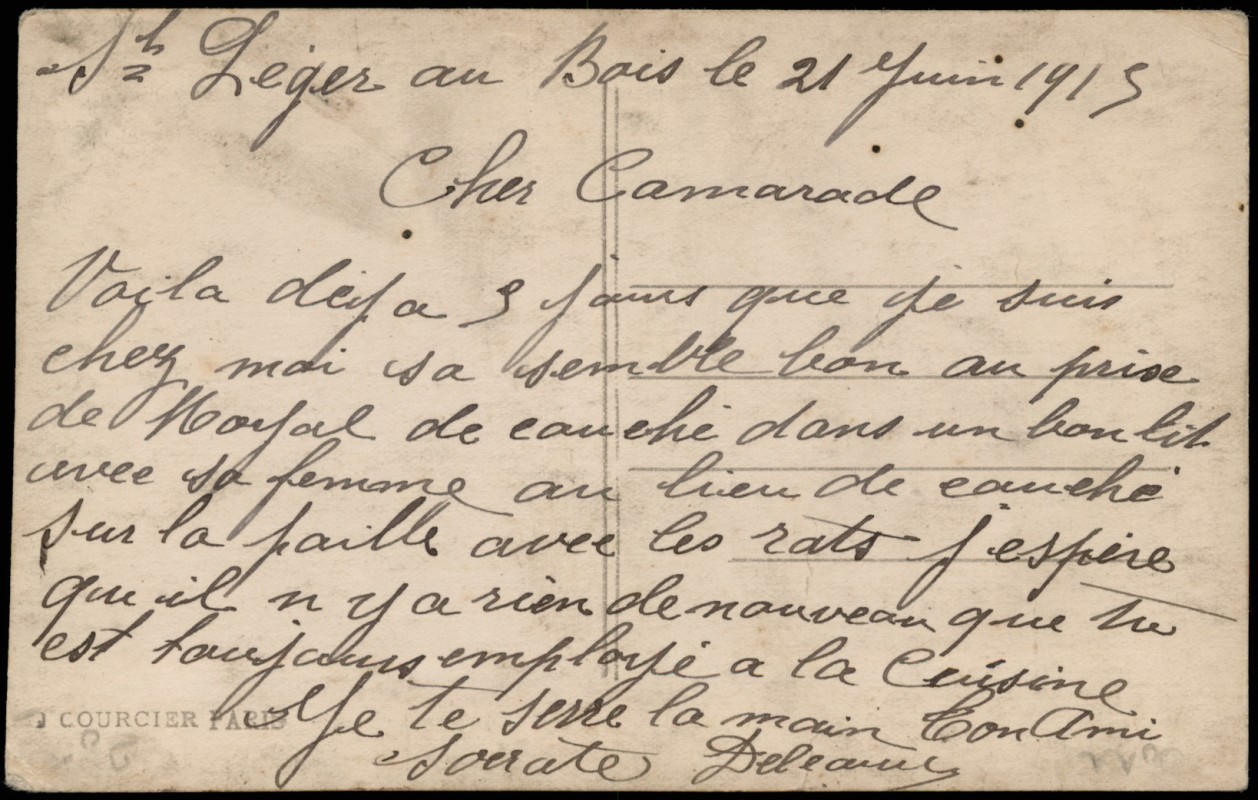 St Léger au Bois le 21 Juin 1915
Cher Camarade
Voila deja 3 jours que je suis
chez moi sa semble bon au prise
de Moyal de couché dans un bon lit
avec sa femme au lieu de couché
sur la paille avec les rats j'espère
qu il n y a rien de nouveau que tu
est toujours employé a la Cuisine
Je te serre la main Ton Ami
Socrate
J COURCIER PARIS